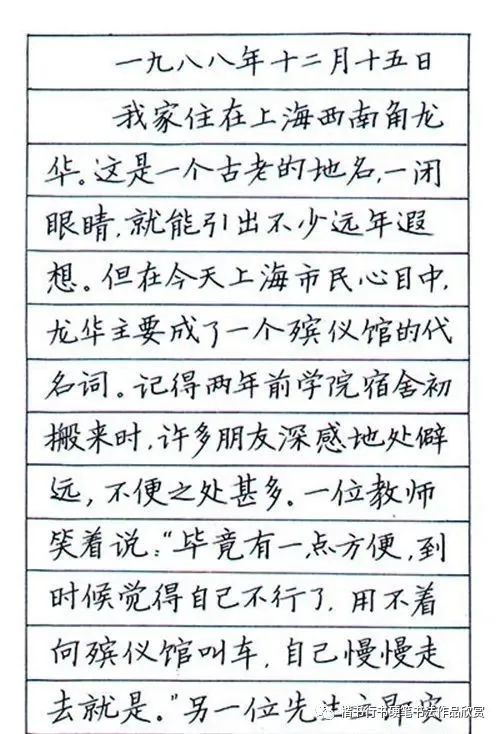 一九八八年十二月十五日
我家住在上海西南角龙
华。这是一个古老的地名,一闭
眼睛,就能引出不少远年遐
想。但在今天上海市民心目中,
龙华主要成了一个殡仪馆的代
名词。记得两年前学院宿舍初
搬来时,许多朋友深感地处僻
远,不便之处甚多。一位教师
笑着说:“毕竟有一点方便,到
时候觉得自己不行了,用不着
向殡仪馆叫车,自己慢慢走
去就是。”另一位先生
楷书行书硬笔书法作品欣赏